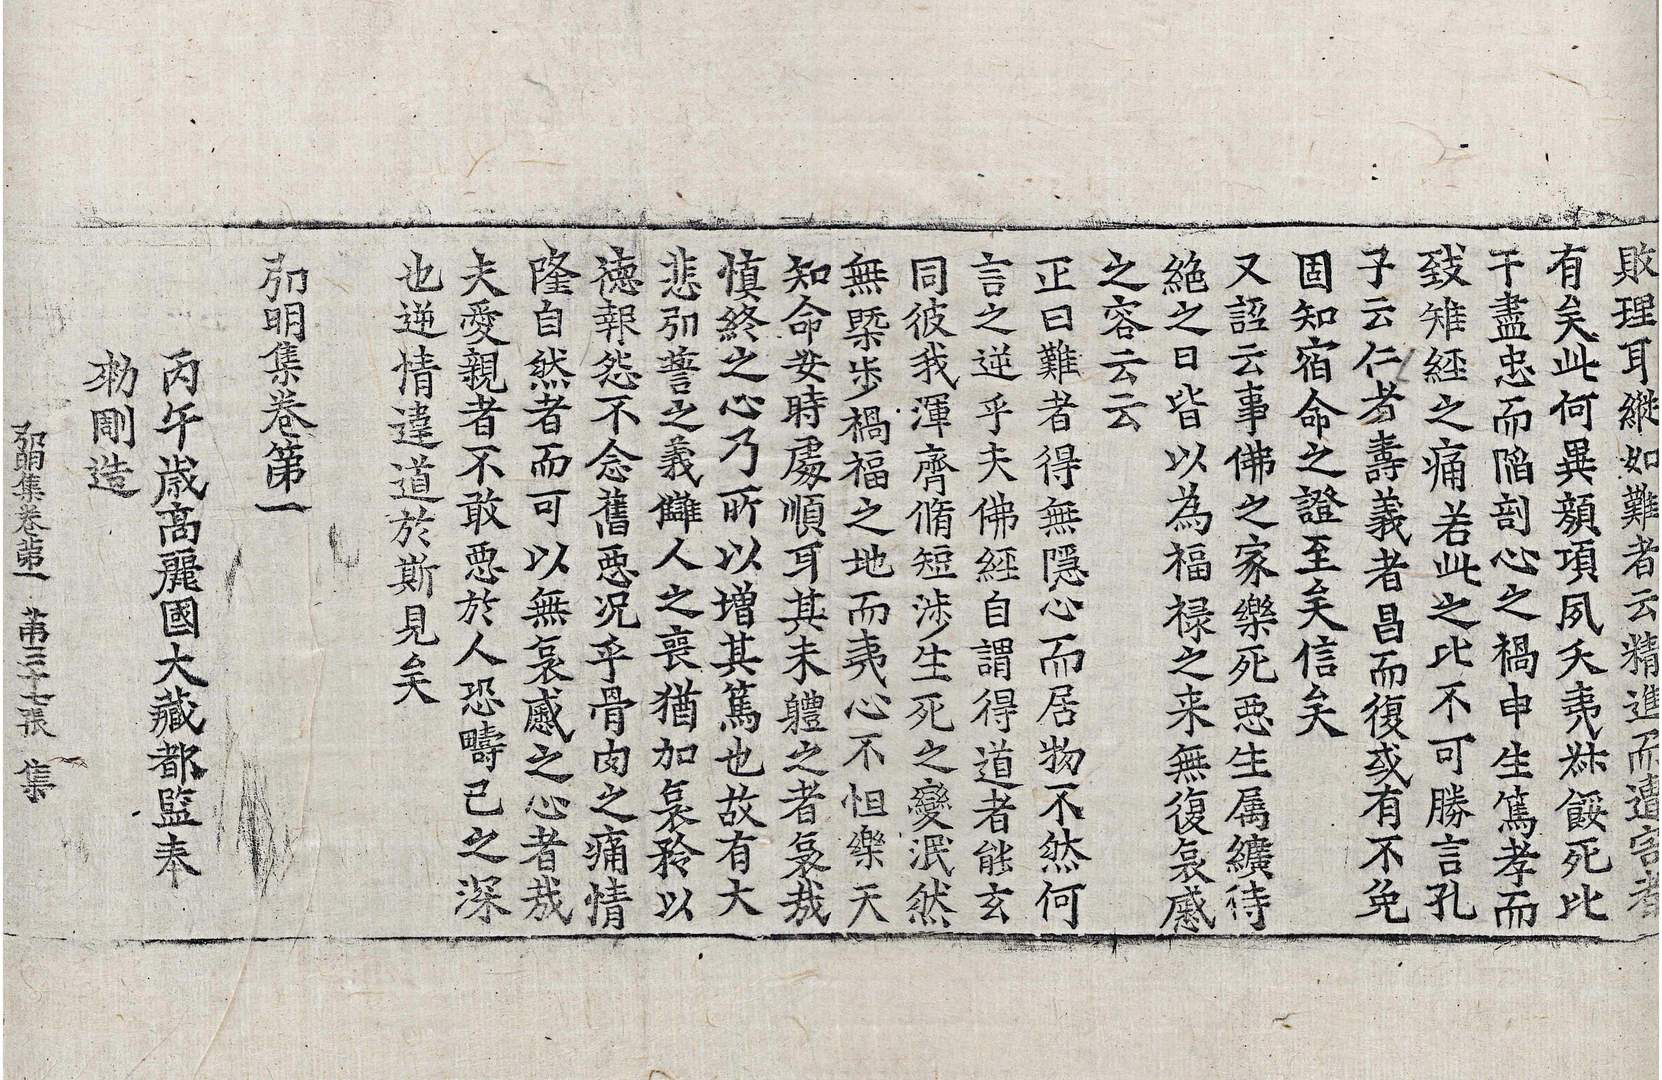 敗理耳縱如難者云精進而遭害者
有矣此何異顔項夙夭夷𠦑餒死比
干盡忠而陷剖心之禍申生篤孝而
致雉經之痛若此之比不可勝言孔
子云仁者壽義者昌而復或有不免
固知宿命之證至矣信矣
又詔云事佛之家樂死惡生属纊待
絶之日皆以為福禄之来無復哀慼
之容云云
正曰難者得無隱心而居物不然何
言之逆乎夫佛經自謂得道者能玄
同彼我渾齊脩短涉生死之變泯然
無槩步禍福之地而夷心不怛樂天
知命安時處順耳其未軆之者哀哉
慎終之心乃所以增其篤也故有大
悲弘誓之義讎人之喪猶加哀矜以
德報怨不念舊惡况乎骨肉之痛情
隆自然者而可以無哀慼之心者哉
夫愛親者不敢惡於人恐疇己之深
也逆情違道於斯見矣
弘明集卷第一
丙午歳高麗國大藏都監奉
勑彫造
弘明集卷第一 第三十七張 集